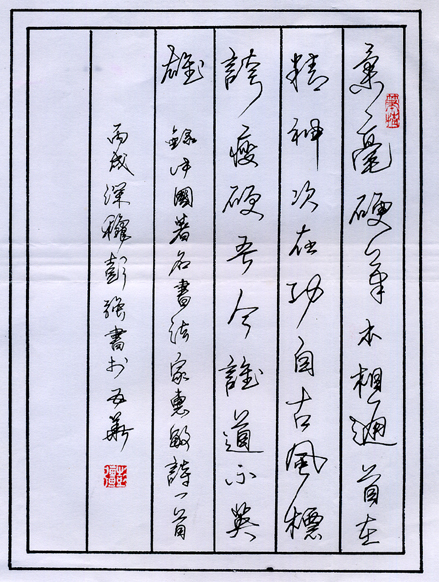 柔毫硬筆本相通首在
精神次在功自古風標
誇瘦硬吾今誰道不英
雄 錄中國著名書法家惠敏詩一首
丙戌深穐彭強書於五華